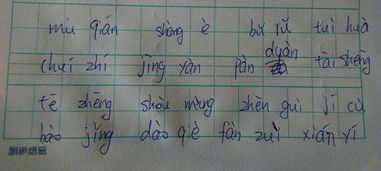 mù qián shàng è bǔ rǔ tuì huà
chuí zhí jīng yàn pàn duàn tāi shēng
tè zhēng shòu mìng zhēn guì jí cù
bào jǐng dào qiè fàn zuì xián yí